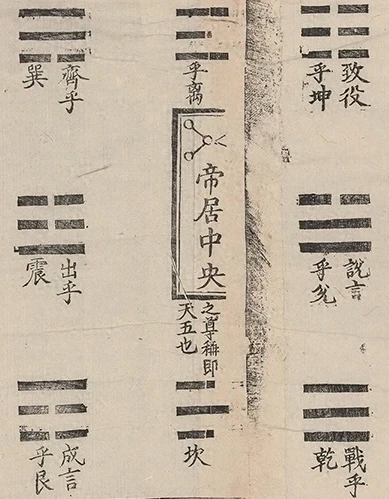 致役
乎坤
乎離
齊乎
巽
說言
乎兌
帝居中央
之尊稱即
天五也
出乎
震
戰乎
乾
坎
成言
乎艮